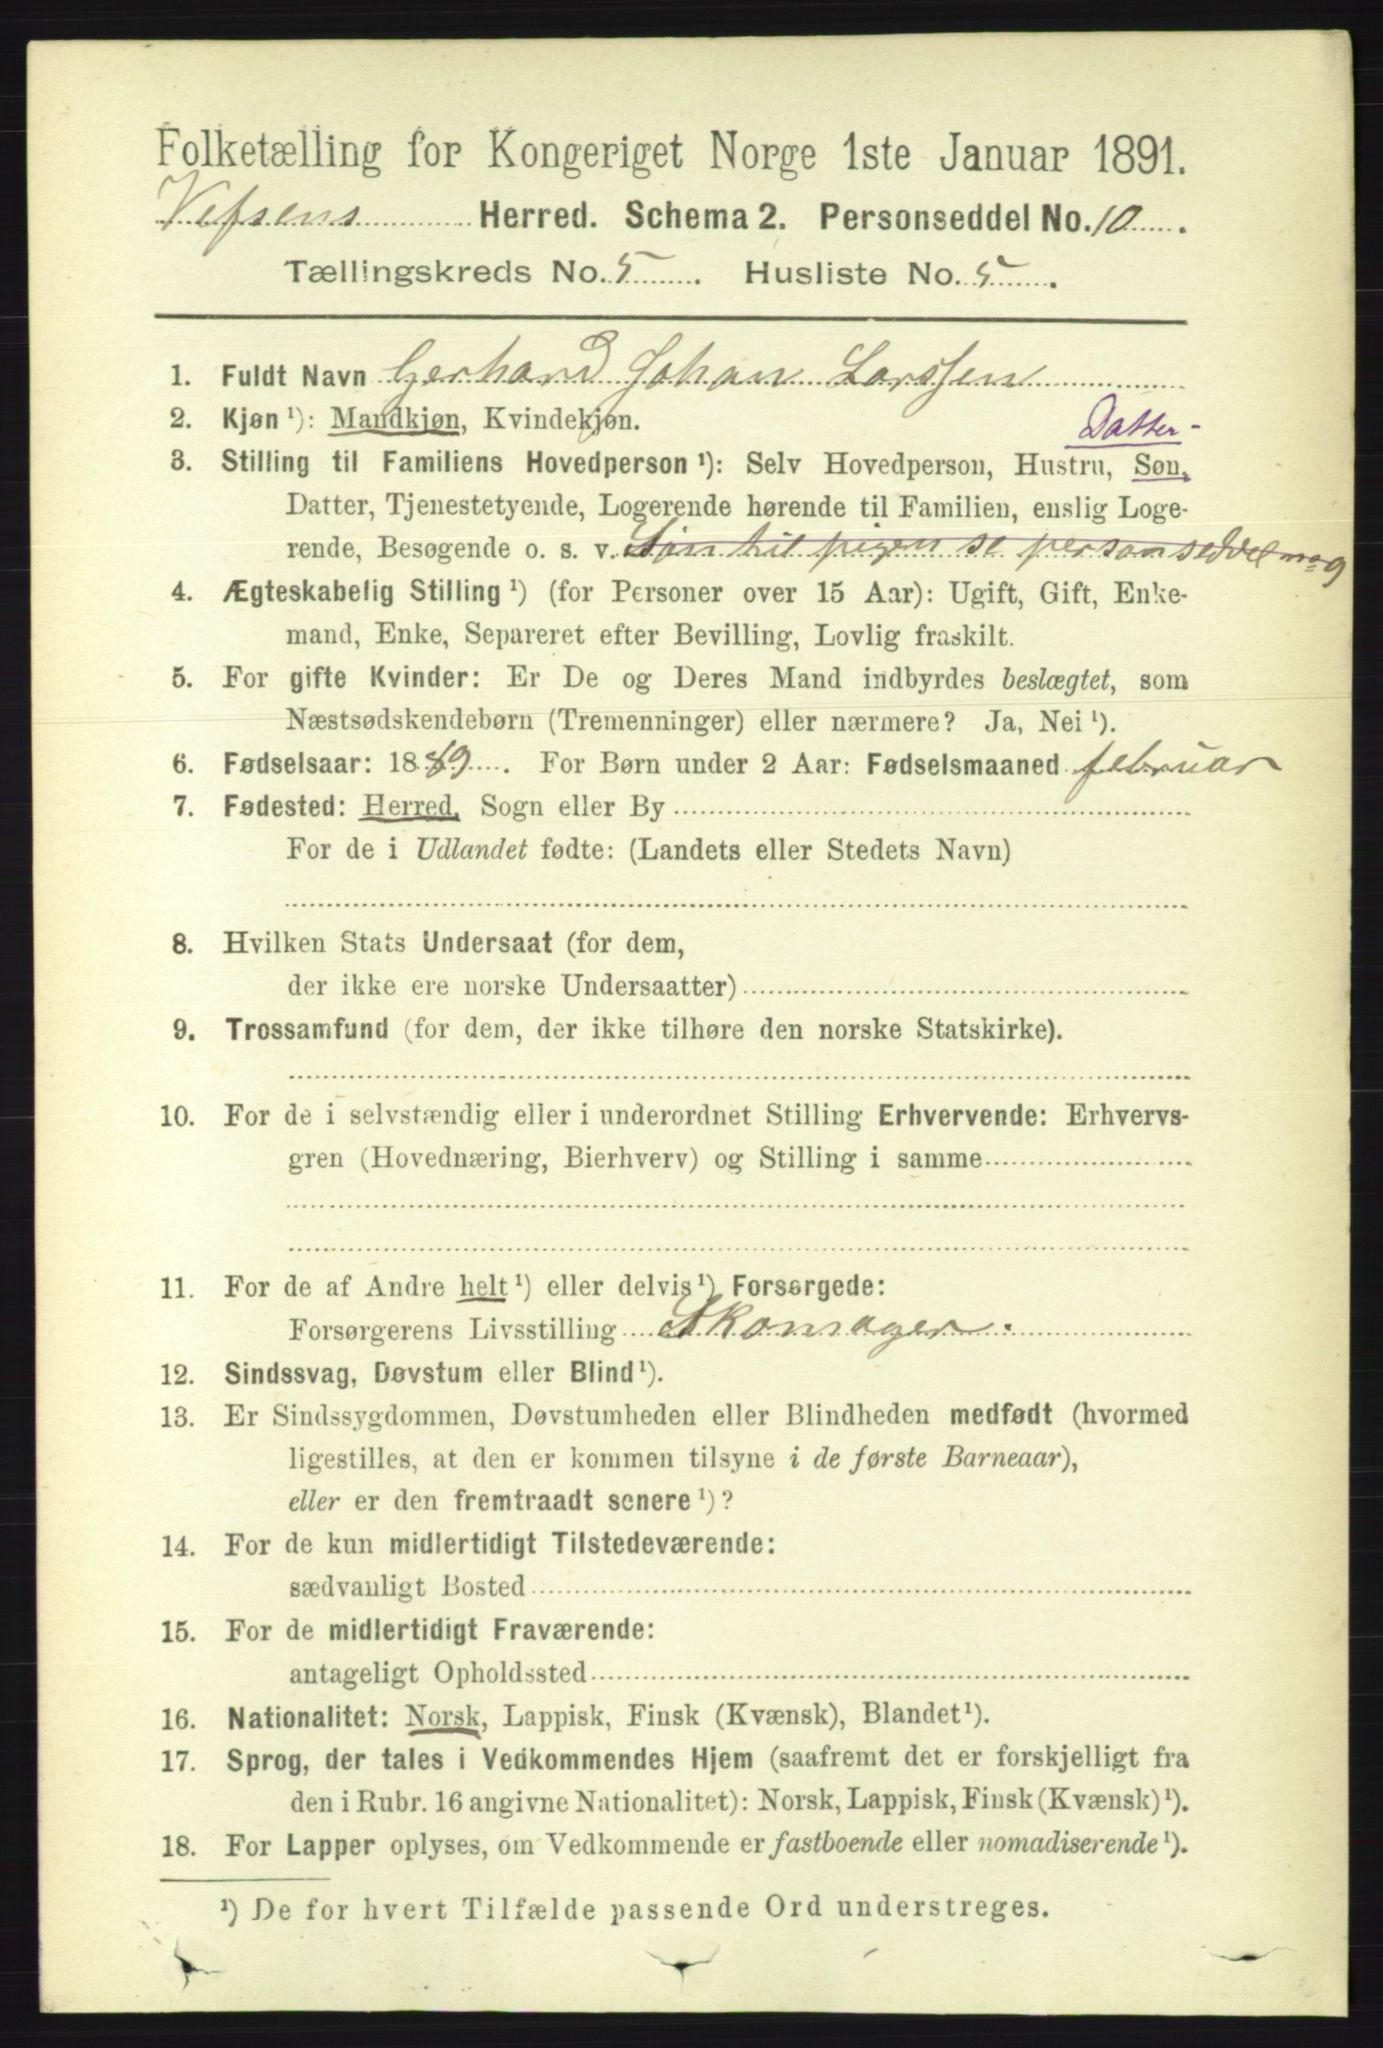 Folketælling for Kongeriget Norge 1ste Januar 1891.
Vefsens Herred. Schema 2. Personseddel No. 10.
Tællingskreds No. 5. Husliste No. 5.
1. Fuldt Navn Gerhard Johan Larssen
2. Kjøn ¹): Mandkjøn, Kvindekjøn.
Datter-
3. Stilling til Familiens Hovedperson ¹): Selv Hovedperson, Hustru, Søn,
Datter, Tjenestetyende, Logerende hørende til Familien, enslig Loge-
rende, Besøgende o. s. v. Søn til pigen se personseddel no 9
4. Ægteskabelig Stilling ¹) (for Personer over 15 Aar): Ugift, Gift, Enke-
mand, Enke, Separeret efter Bevilling, Lovlig fraskilt.
5. For gifte Kvinder: Er De og Deres Mand indbyrdes beslægtet, som
Næstsødskendebørn (Tremenninger) eller nærmere? Ja, Nei ¹).
6. Fødselsaar: 1889. For Børn under 2 Aar: Fødselsmaaned februar
7. Fødested: Herred, Sogn eller By
For de i Udlandet fødte: (Landets eller Stedets Navn)
8. Hvilken Stats Undersaat (for dem,
der ikke ere norske Undersaatter)
9. Trossamfund (for dem, der ikke tilhøre den norske Statskirke).
10. For de i selvstændig eller i underordnet Stilling Erhvervende: Erhvervs-
gren (Hovednæring, Bierhverv) og Stilling i samme
11. For de af Andre helt ¹) eller delvis ¹) Forsørgede:
Forsørgerens Livsstilling Skomager.
12. Sindssvag, Døvstum eller Blind ¹).
13. Er Sindssygdommen, Døvstumheden eller Blindheden medfødt (hvormed
ligestilles, at den er kommen tilsyne i de første Barneaar),
eller er den fremtraadt senere ¹)?
14. For de kun midlertidigt Tilstedeværende:
sædvanligt Bosted
15. For de midlertidigt Fraværende:
antageligt Opholdssted
16. Nationalitet: Norsk, Lappisk, Finsk (Kvænsk), Blandet ¹).
17. Sprog, der tales i Vedkommendes Hjem (saafremt det er forskjelligt fra
den i Rubr. 16 angivne Nationalitet): Norsk, Lappisk, Finsk (Kvænsk) ¹).
18. For Lapper oplyses, om Vedkommende er fastboende eller nomadiserende ¹).
¹) De for hvert Tilfælde passende Ord understreges.